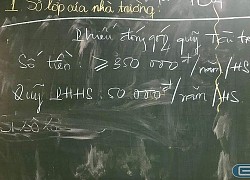 1 Sĩ số lớp của nhà trường:
Phiếu đóng góp quỹ tài tr
Số tiền: ≥ 350 000đ/năm/HS
Quỹ PHHS: 50 000đ/năm/HS